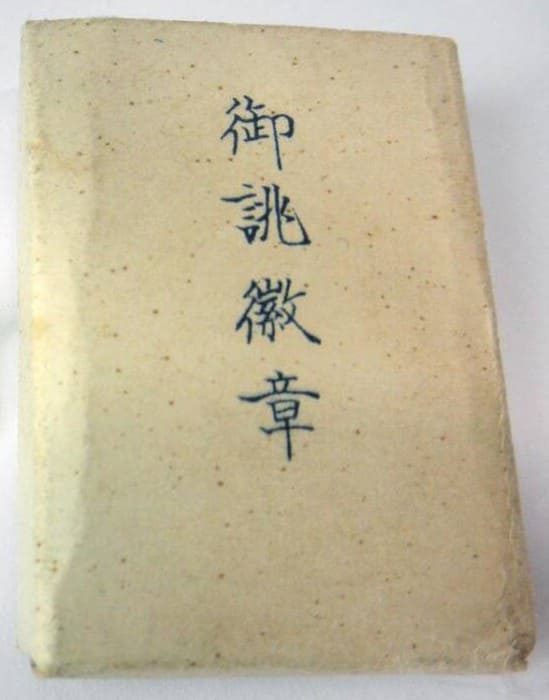 御誂徽章